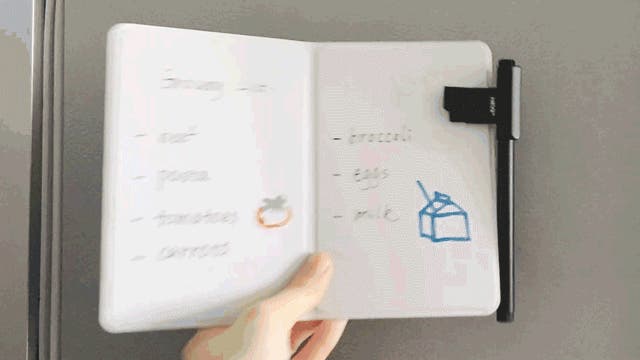 Grocery list
- meat
- pasta
- tomatoes
- carrots
- broccoli
- eggs
- milk